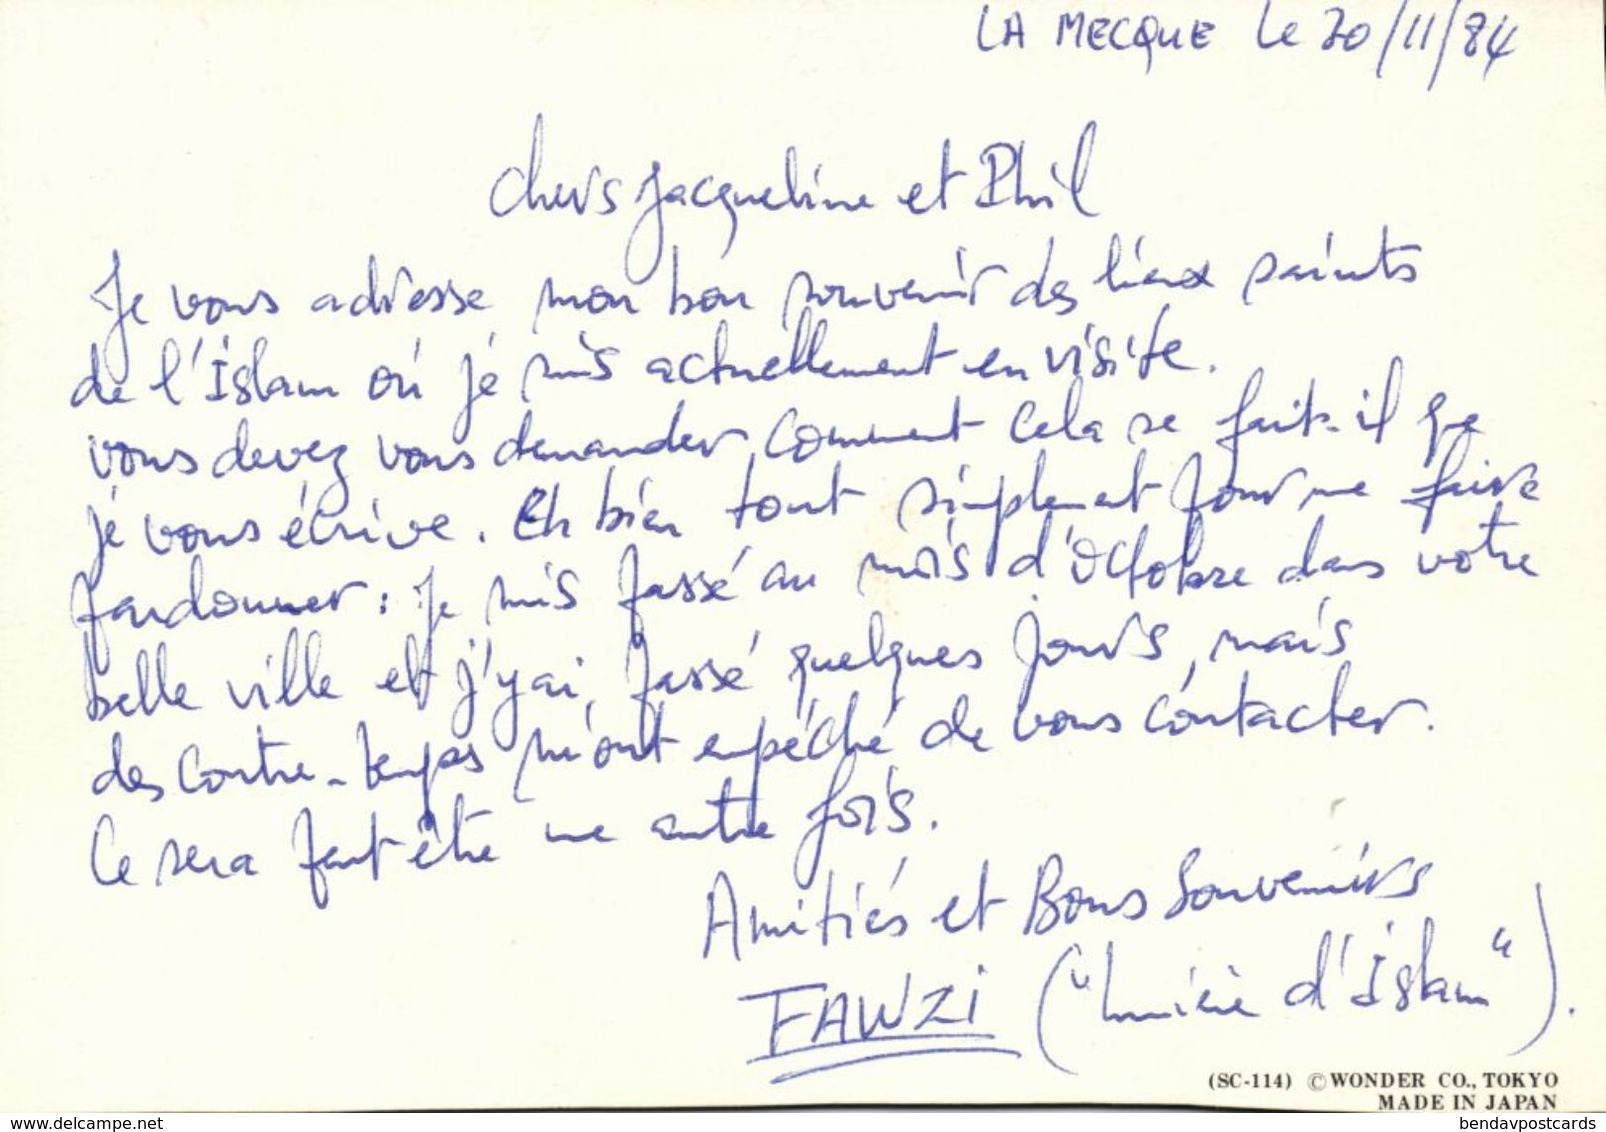 LA MECQUE Le 20/11/84
Chers Jacqueline et Phil
Je vous adresse mon bon souvenir des lieux saints
de l'Islam où je suis actuellement en visite.
vous devez vous demander comment cela se fait-il que
je vous écrive. Eh bien tout simplement pour me faire
pardonner : je suis passé au mois d'Octobre dans votre
belle ville et j'y ai passé quelques jours, mais
des contre-temps m'ont empêché de vous contacter.
Ce sera peut être une autre fois.
Amitiés et Bons Souvenirs
FAWZI ("Lumière d'Islam").
(SC-114) ©WONDER CO., TOKYO
MADE IN JAPAN
www.delcampe.net
bendavpostcards